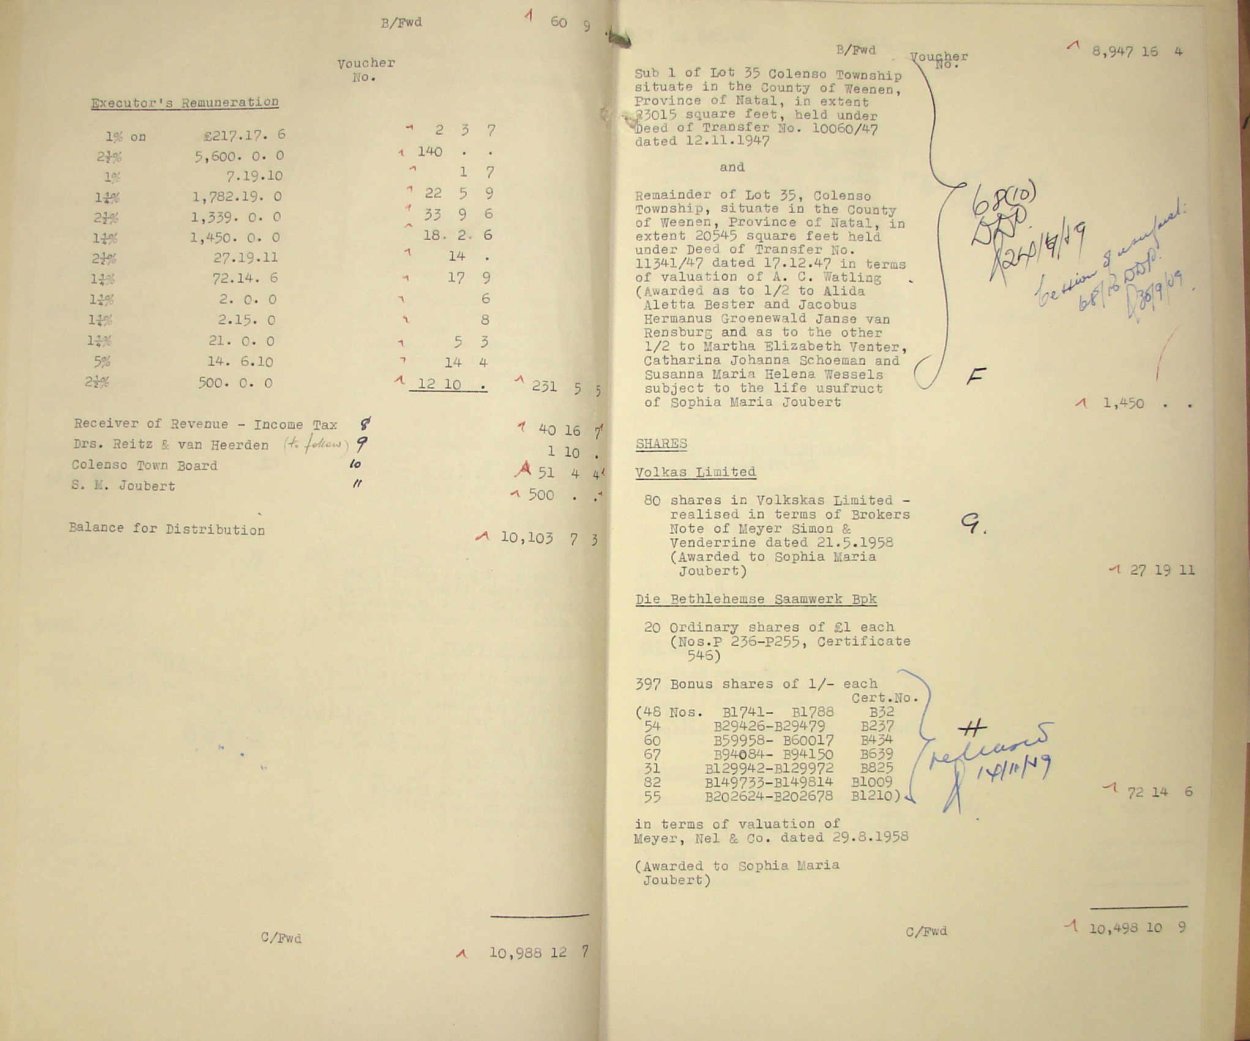 B/Fwd 60 9
Voucher
No.
Executor's Remuneration
1% on £217.17. 6 2 3 7
2½% 5,600. 0. 0 140 . .
1% 7.19.10 1 7
1¼% 1,782.19. 0 22 5 9
2½% 1,339. 0. 0 33 9 6
1¼% 1,450. 0. 0 18. 2. 6
2½% 27.19.11 14 .
1¼% 72.14. 6 17 9
1¼% 2. 0. 0 6
1¼% 2.15. 0 8
1¼% 21. 0. 0 5 3
5% 14. 6.10 14 4
2½% 500. 0. 0 12 10 . 231 5 5
Receiver of Revenue - Income Tax 8 40 16 7
Drs. Reitz & van Heerden (to follow) 9 1 10 .
Colenso Town Board 10 51 4 4
S. M. Joubert 11 500 . .
Balance for Distribution 10,103 7 3
C/Fwd 10,988 12 7
B/Fwd Voucher No. 8,947 16 4
Sub 1 of Lot 35 Colenso Township
situate in the County of Weenen,
Province of Natal, in extent
23015 square feet, held under
Deed of Transfer No. 10060/47
dated 12.11.1947
and
Remainder of Lot 35, Colenso
Township, situate in the County
of Weenen, Province of Natal, in
extent 20545 square feet held
under Deed of Transfer No.
11341/47 dated 17.12.47 in terms
of valuation of A. C. Watling
(Awarded as to 1/2 to Alida
Aletta Bester and Jacobus
Hermanus Groenewald Janse van
Rensburg and as to the other
1/2 to Martha Elizabeth Venter,
Catharina Johanna Schoeman and
Susanna Maria Helena Wessels
subject to the life usufruct
of Sophia Maria Joubert F 1,450 . .
68(10)
SHARES
Volkas Limited
80 shares in Volkskas Limited -
realised in terms of Brokers
Note of Meyer Simon & G.
Venderrine dated 21.5.1958
(Awarded to Sophia Maria
Joubert) 27 19 11
Die Bethlehemse Saamwerk Bpk
20 Ordinary shares of £1 each
(Nos.P 236-P255, Certificate
546)
397 Bonus shares of 1/- each
Cert.No.
(48 Nos. B1741- B1788 B32
54 B29426-B29479 B237
60 B59958- B60017 B434
67 B94084- B94150 B639
31 B129942-B129972 B825
82 B149733-B149814 B1009
55 B202624-B202678 B1210) 72 14 6
H
released
in terms of valuation of
Meyer, Nel & Co. dated 29.8.1958
(Awarded to Sophia Maria
Joubert)
C/Fwd 10,498 10 9